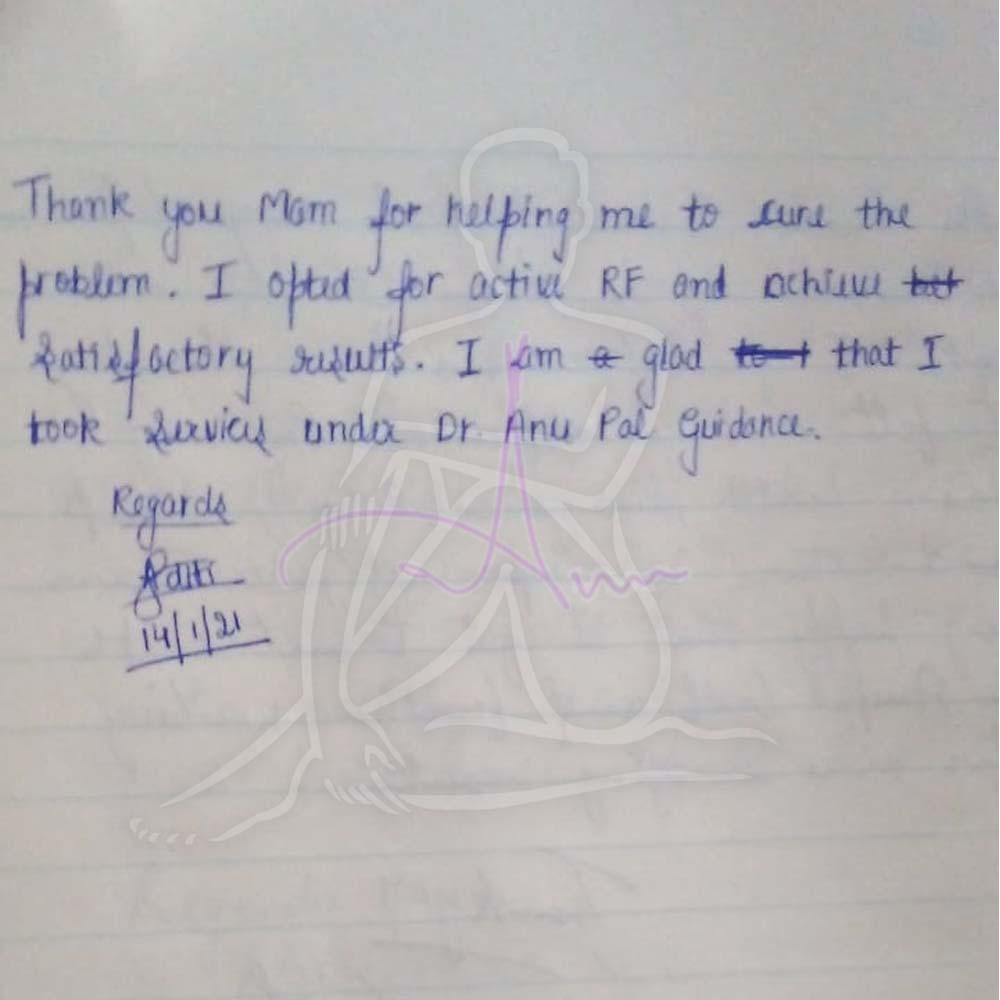 Thank you Mam for helping me to cure the
problem. I opted for active RF and achieve
satisfactory results. I am glad that I
took services under Dr. Anu Pal Guidance.
Regards
14/1/21
Anu